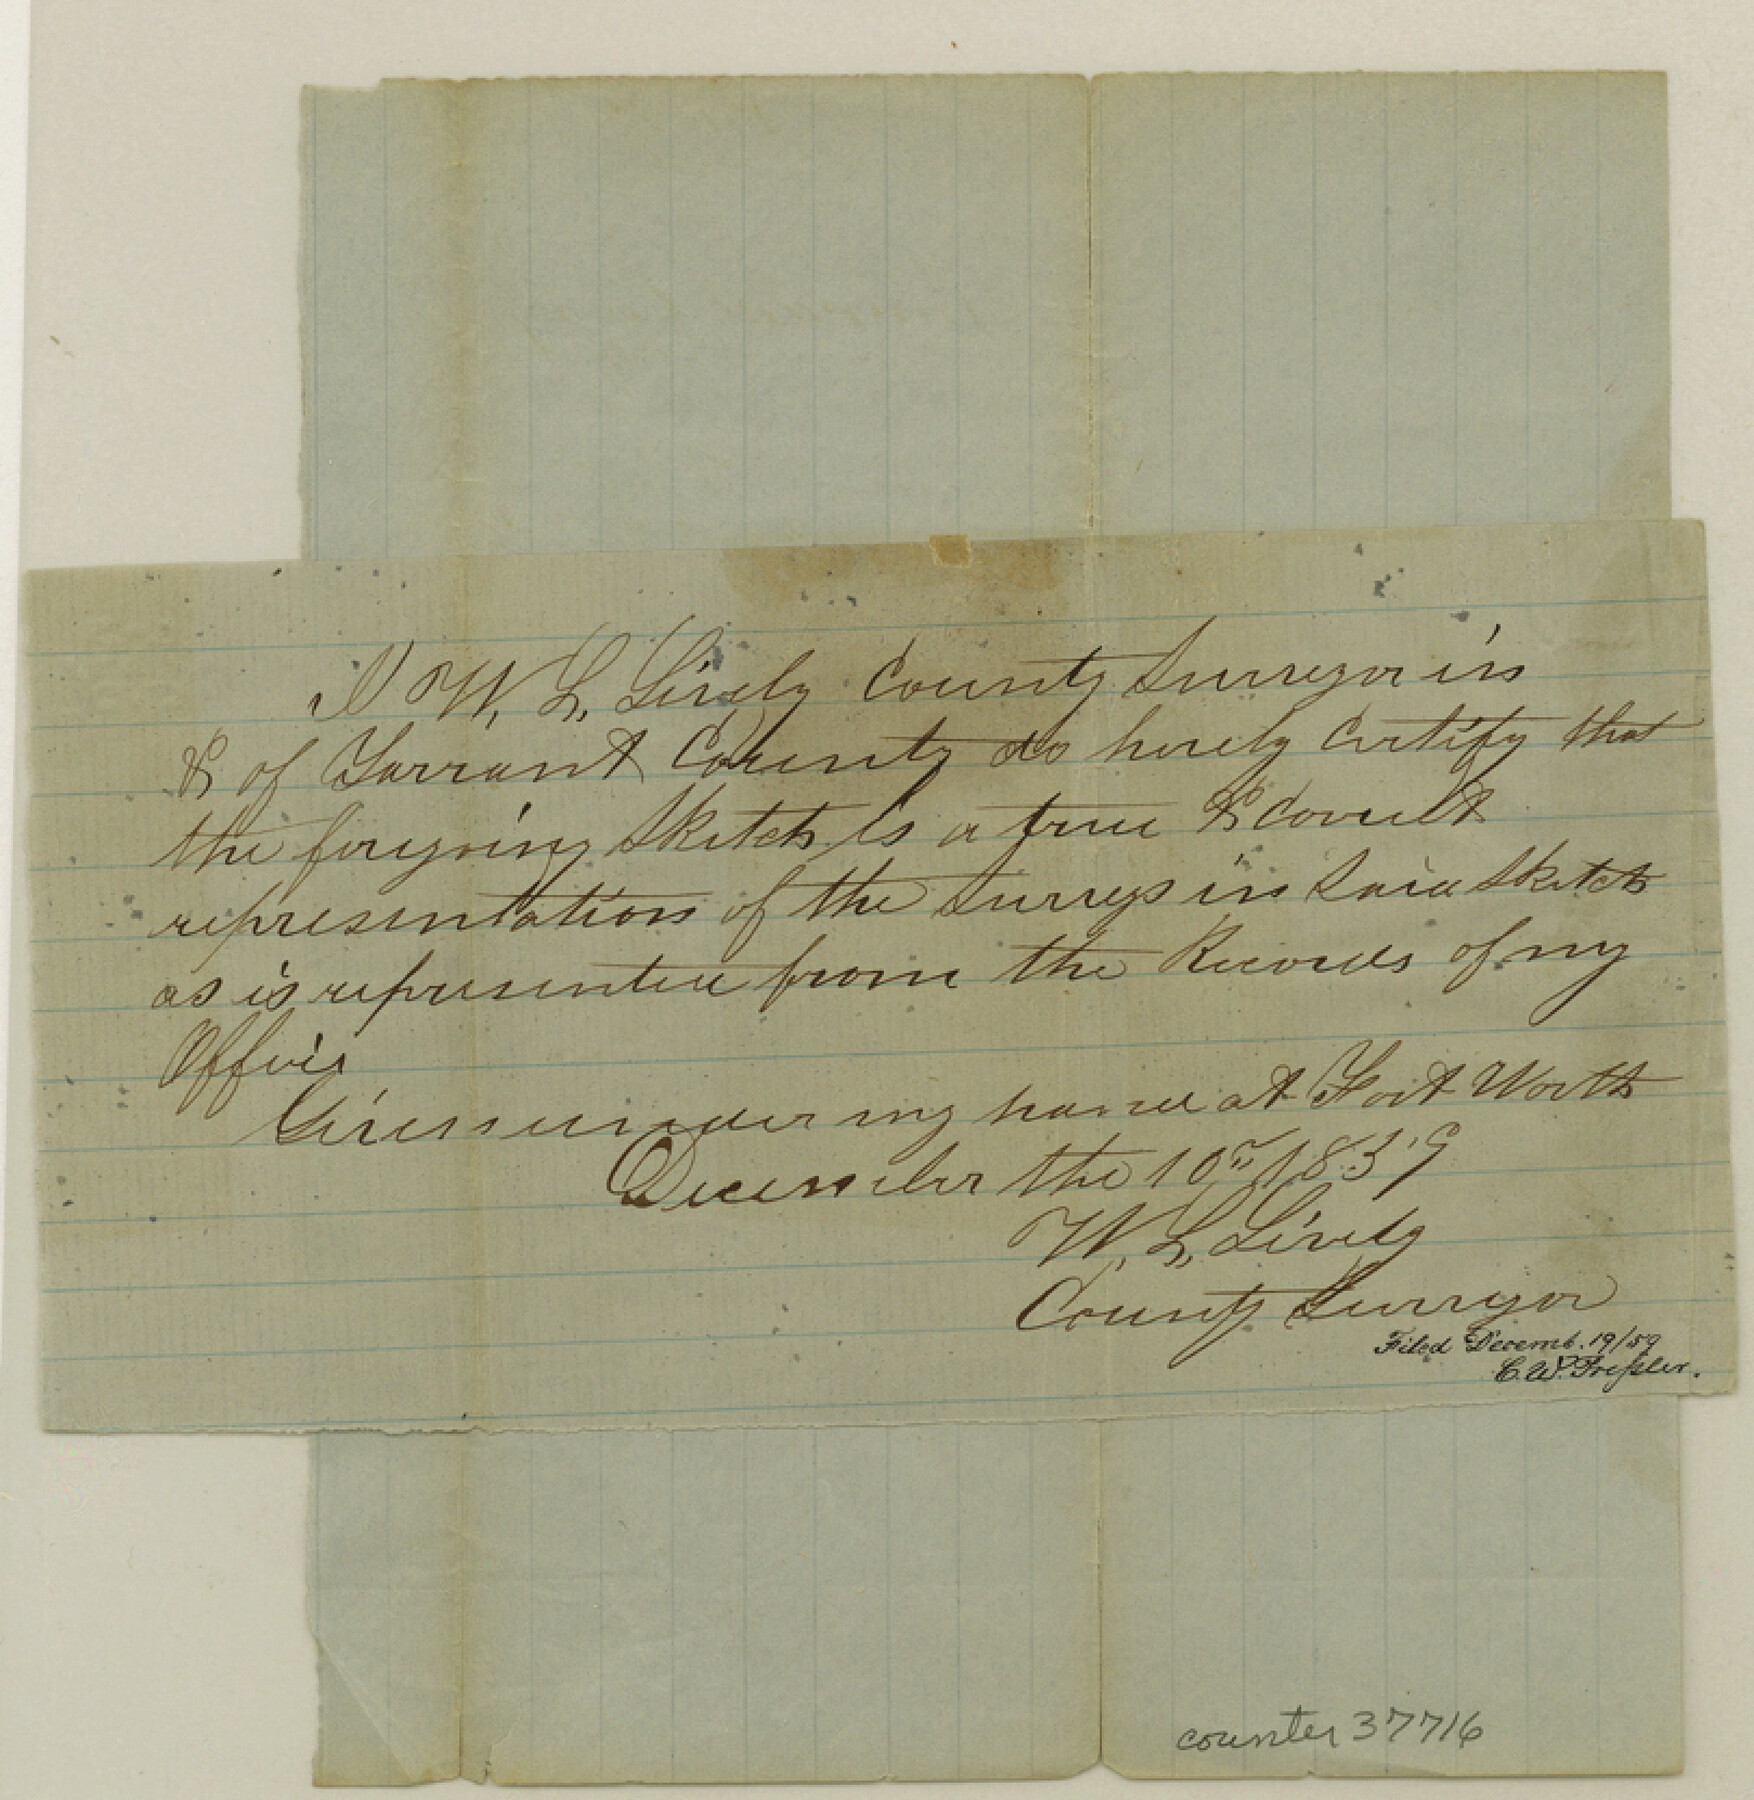 I W. L. Lively County Surveyor in
& of Tarrant County do hereby Certify that
the foregoing Sketch is a true & Correct
representation of the Surveys in Said Sketch
as is represented from the Records of my
Office
Given under my hand at Fort Worth
December the 10th 1859
W. L. Lively
County Surveyor
Filed Decemb. 19/59
C. W. Pressler.
counter 37716